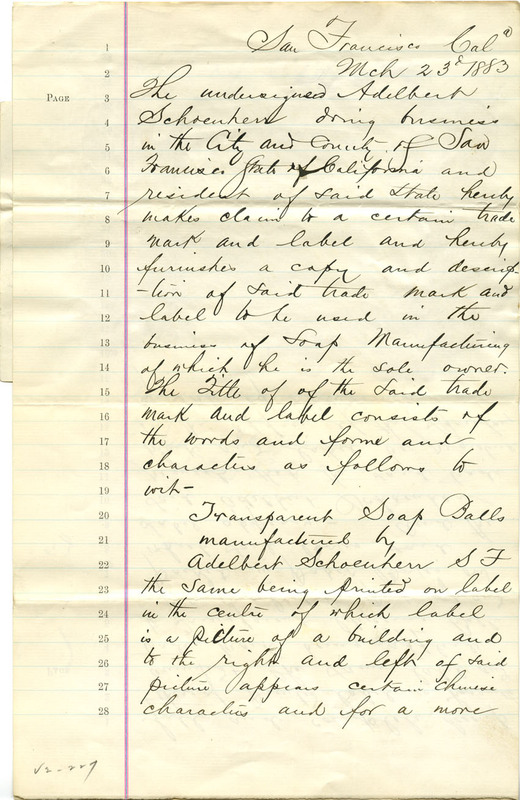 San Francisco Cal a
1
2 Mch 23d 1883
PAGE 3 The undersigned Adelbert
4 Schoenherr doing business
5 in the City and County of San
6 Francisco State of California and
7 resident of said State hereby
8 makes claim to a certain trade
9 mark and label and hereby
10 furnishes a copy and descrip
11 -tion of said trade mark and
12 label to be used in the
13 business of Soap Manufacturing
14 of which he is the sole owner.
15 The Title of of the said trade
16 mark and label consists of
17 the words and forme and
18 characters as follows to
19 wit-
20 Transparent Soap Balls
21 manufactured by
22 Adelbert Schoenherr S F
23 the same being printed on label
24 in the centre of which label
25 is a picture of a building and
26 to the right and left of said
27 picture appears certain chinese
28 characters and for a more